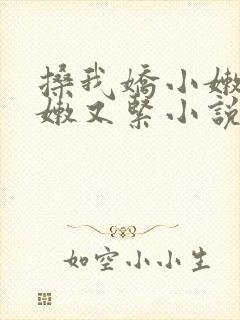 搡我嬌小嫩
嫩又緊小說
如空小小生